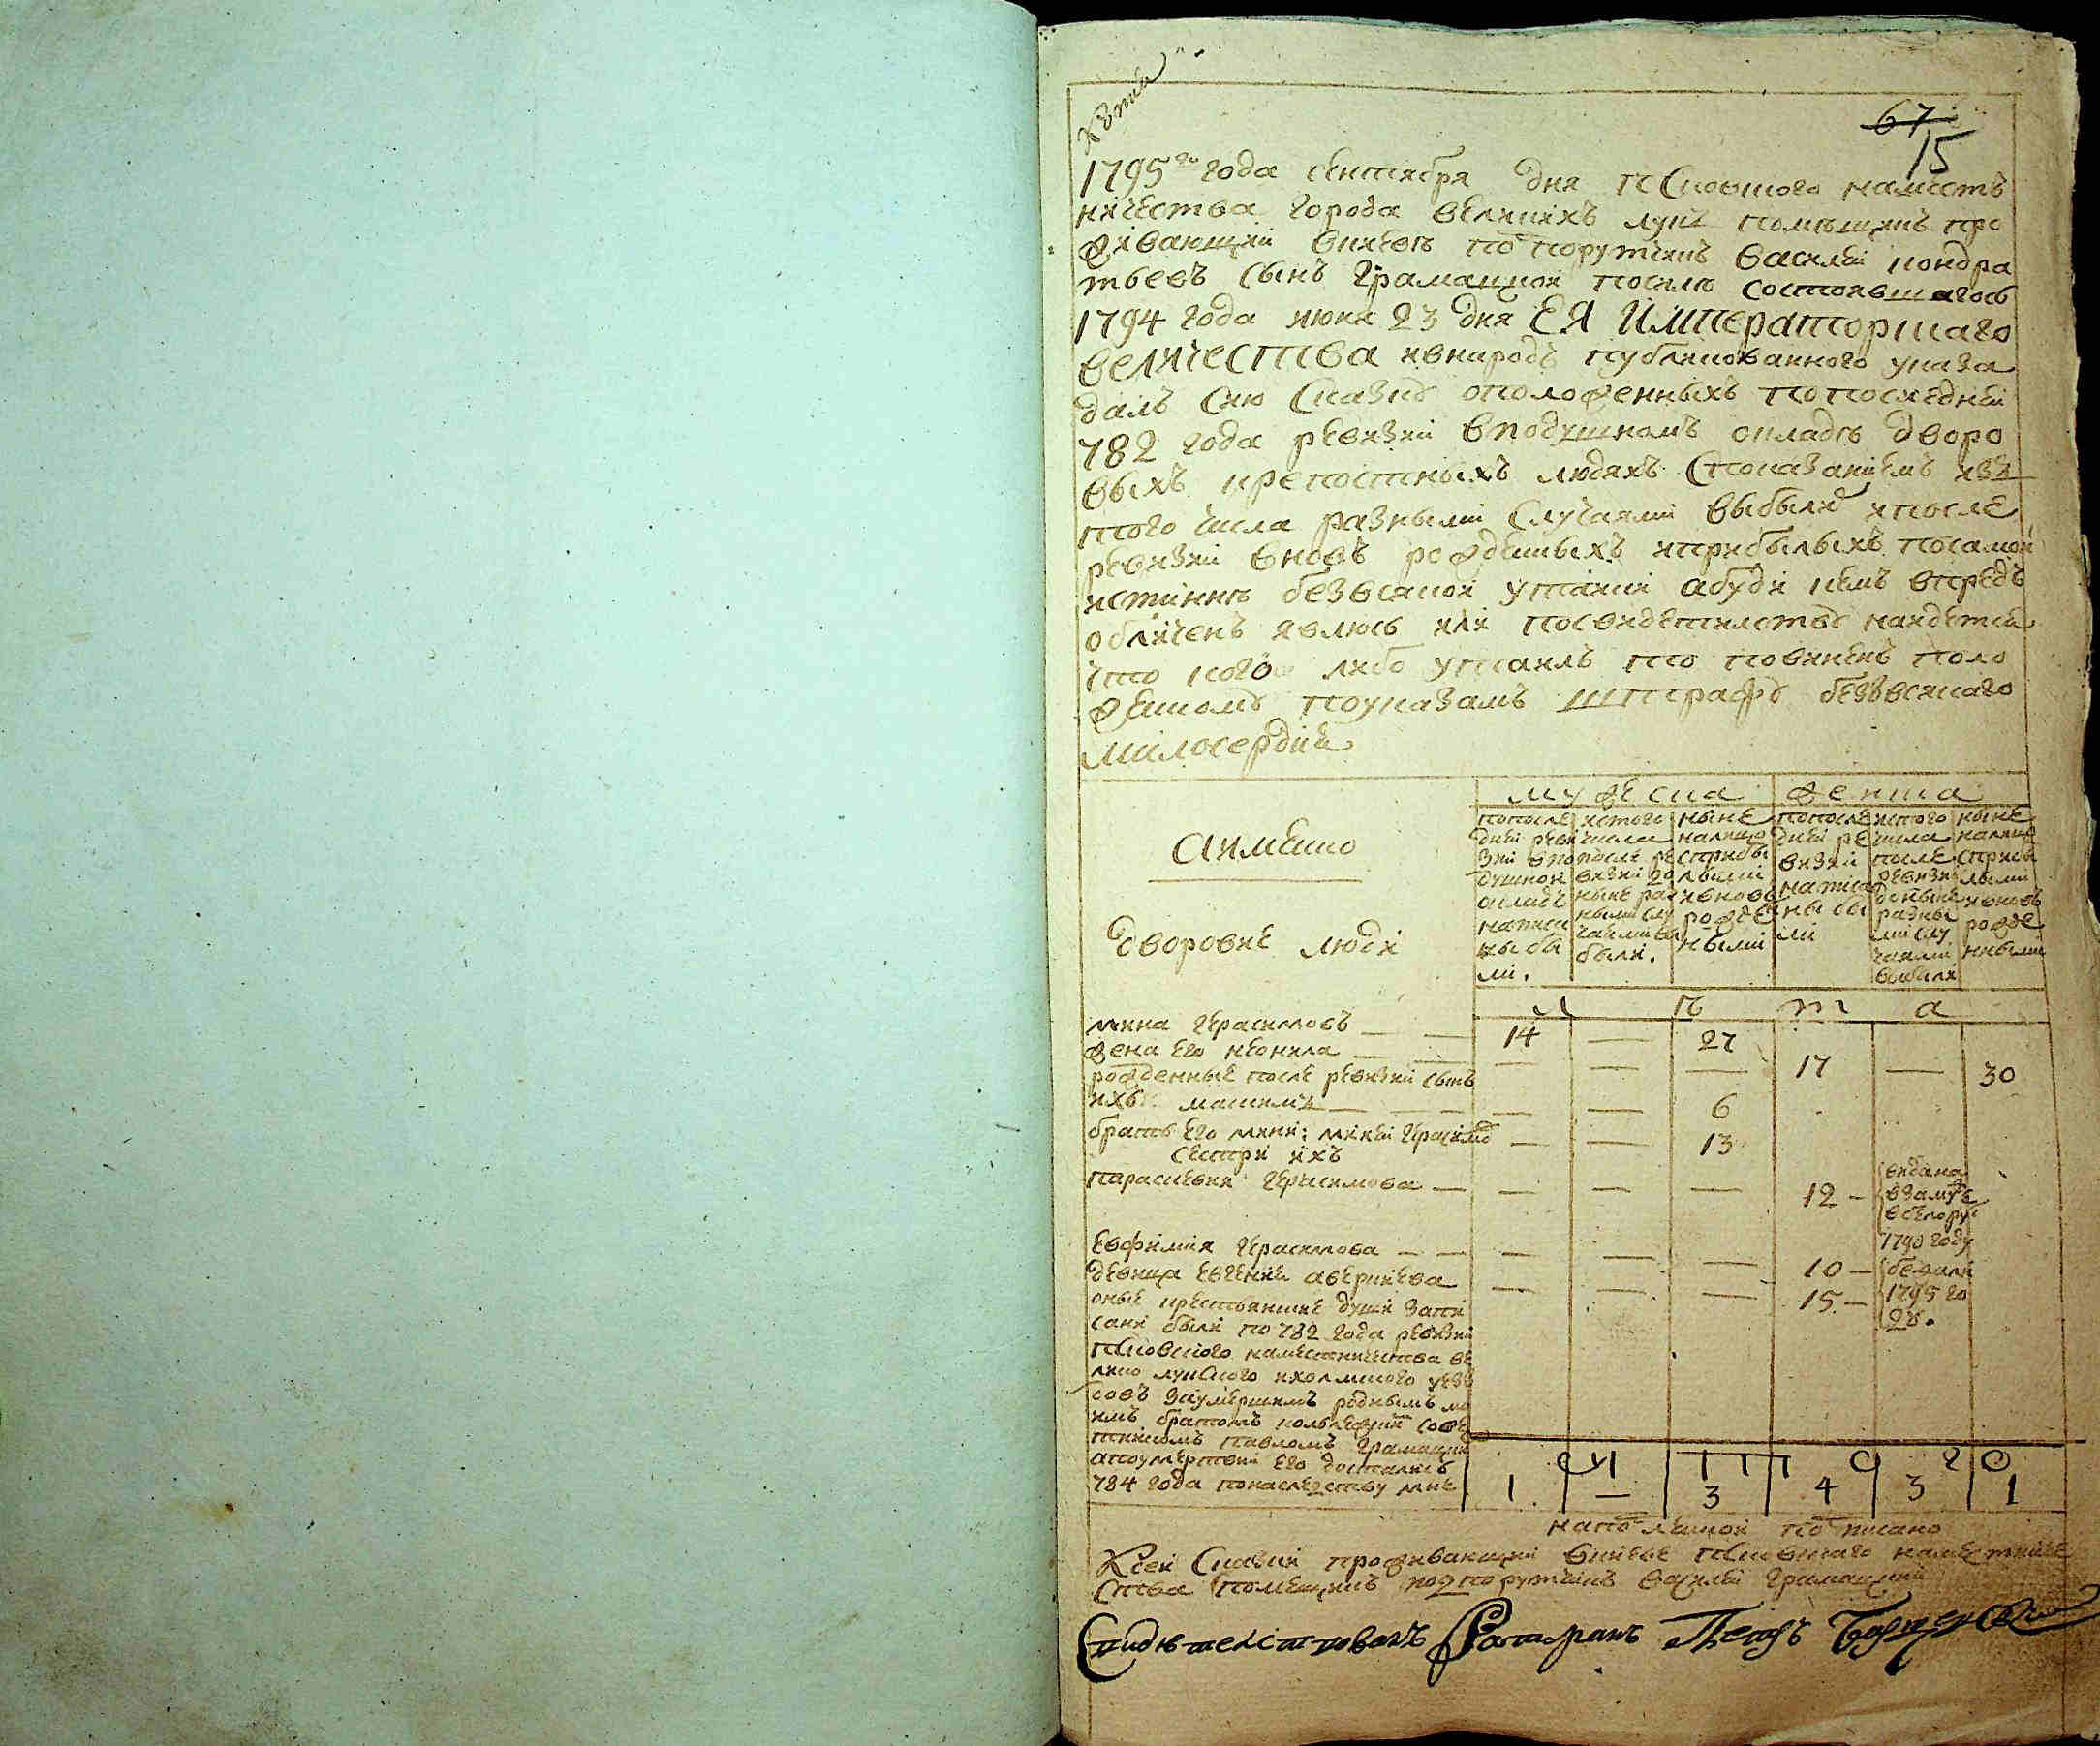 Копия
67
15
1795го года сентября дня псковского намест
ничества города великихъ лукъ помещикъ про
живающий вкиеве подпорутчикъ василей кондра
тьевъ сынъ грамацкой посиле состоявшагось
1794 года июня 23 дня ЕЯ Императорскаго
величества ивнародъ публикованного указа
далъ сию сказку оположенныхъ попоследней
782 года ревизии вподушномъ окладе дворо
выхъ крепостныхъ людяхъ споказаниемъ изъ
того числа разными случаями выбылыхъ ипосле
ревизии вновь рожденныхъ иприбылыхъ посамой
истинне безвсякой утайки абуди кемъ впредь
обличенъ явлюсь или посвидетелству наидется
что кого либо утаилъ то повиненъ поло
женному поуказамъ штрафу безвсякаго
милосердия
мужеска женска
Аимянно
дворовие люди
попосле
дней реви
зии впо
душной
окладъ
написа
ны бы
ли.
истого
числа
после ре
визии до
ныне раз
ными слу
чаями вы
были.
ныне
налицо
сприбы
лыми
ивновь
рожде
ными
попосле
дней ре
визии
написа
ны бы
ли
истого
числа
после
ревизии
доныне
разны
ми слу
чаями
выбыли
ныне
налицо
сприбы
лыми
ивновь
рожде
нными
л е т а
мина герасимовъ — — 14 — 27
жена его неонила — — — — — 17 — 30
рожденные после ревизии сынъ
ихъ максимъ — — — — — 6
братъ его мини: михей герасимо — — 13
сестри ихъ
парасковия герасимова — — — — 12 — видана
взамуже
вбелору
1790 году
евфимия герасимова — — — — — 10 — бежали
девица евгения аверкиева — — — 15 — 1795 го
ду.
оные крестьянские души запи
сани были по 782 года ревизии
псковского наместничества ве
лико лукского ихолмского уезд
зaумершимъ роднымъ мо
имъ братомъ колежским сове
тникомъ павломъ грамацки
апоумертвии его достались
784 года понаследству мне
и т о г о
1 — 3 4 3 1
написанной подписано
Ксей сказки проживающий вкиеве псковскаго наместниче
ства помещикъ подпорутчикъ василей грамацкий
Свидетелствовалъ Ротмистръ Петръ